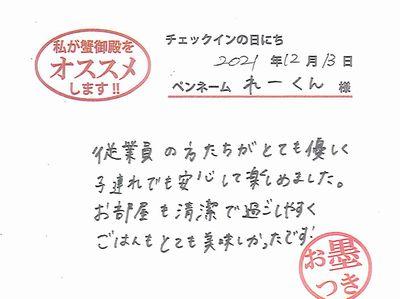 私が蟹御殿を
オススメ
します!!
チェックインの日にち
2021年12月13日
ペンネーム れーくん 様
従業員の方たちがとても優しく
子連れでも安心して楽しめました。
お部屋も清潔で過ごしやすく
ごはんもとても美味しかったです!
お墨
つき